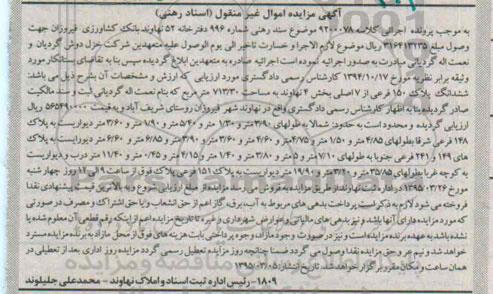 آگهی مزایده اموال غیر منقول (اسناد رهنی)
به موجب پرونده اجرائی کلاسه ۹۳۰۰۰۷۸ موضوع سند رهنی شماره ۹۹۶ دفترخانه ۵۲ نهاوند بانک کشاورزی فیروزان جهت
وصول مبلغ ۳۱۶۴۱۳۱۳۵ ریال موضوع لازم الاجرا و خسارت تاخیر الی یوم الوصول علیه متعهدین شرکت غزل دوش گردیان و
نعمت اله گردیانی مبادرت به صدور اجرائیه نموده است اجرائیه صادره به متعهدین ابلاغ گردیده سپس بنا به تقاضای بستانکار مورد
وثیقه برابر نظریه مورخ ۱۳۹۴/۱۰/۱۷ کارشناس رسمی دادگستری مورد ارزیابی که ارزش و مشخصات آن بشرح ذیل می باشد:
ششدانگ پلاک ۱۵۰ فرعی از ۷ اصلی بخش ۴ نهاوند به مساحت ۷۱۳/۳۰ متر مربع که بنام نعمت اله گردیانی ثبت و سند مالکیت
صادر گردیده بنا به اظهار کارشناس رسمی دادگستری واقع در نهاوند شهر فیروزان روستای شریف آباد و به قیمت ۵۶۵۴۹۰۰۰۰ ریال
ارزیابی گردیده و محدود است به حدود: شمالا به طولهای ۳/۹۰ متر و ۱/۳۰ متر و ۵/۴۰ متر و ۱/۹۰ متر و ۳/۶۰ متر دیواریست به پلاک
۱۴۸ فرعی شرقا بطولهای ۴/۸۵ متر و ۱/۵۰ متر و ۴/۷۵ متر و ۴/۶۰ متر و ۳/۶۰ متر و ۳/۹۰ متر و ۶/۸۵ متر و ۶/۶۰ متر دیواریست به پلاک
های ۱۴۹ و ۲۴۱ فرعی جنوبا به طولهای ۷/۱۰ متر و ۵ متر و ۳/۸۰ متر و ۱/۴۰ متر و ۴/۱۵ متر و ۰/۴۵ متر و ۱۱/۴۰ متر درب و دیواریست
به کوچه غربا بطولهای ۳۵/۸۵ متر و ۳/۲۰ متر و ۱۹/۹۰ متر دیواریست به پلاک ۱۵۱ فرعی پلاک فوق از ساعت ۹ الی ۱۲ روز چهار شنبه
مورخ ۱۳۹۵/۰۳/۲۶ در اداره ثبت نهاوند از طریق مزایده به فروش می رسد مزایده از مبلغ ارزیابی شروع و به بالاترین قیمت پیشنهادی نقدا
فروخته می شود لازم به ذکر است پرداخت بدهی های مربوط به آب، برق، گاز اعم از حق انشعاب و یا حق اشتراک و مصرف در صورتی
که مورد مزایده دارای آنها باشد و نیز بدهی های مالیاتی و عوارض شهرداری و غیره تا تاریخ مزایده اعم از اینکه رقم قطعی آن معلوم شده یا
نشده باشد به عهده برنده مزایده است و نیز در صورت وجود مازاد، وجوه پرداختی بابت هزینه های فوق از محل مازاد به برنده مزایده مسترد
خواهد شد و نیم عشر و حق مزایده نقدا وصول می گردد ضمنا چنانچه روز مزایده تعطیل رسمی گردد مزایده روز اداری بعد از تعطیلی در
همان ساعت و مکان مقرر برگزار خواهد شد. تاریخ انتشار: ۱۳۹۵/۰۳/۰۵
۱۸۰۹ - رئیس اداره ثبت اسناد و املاک نهاوند - محمدعلی جلیلوند